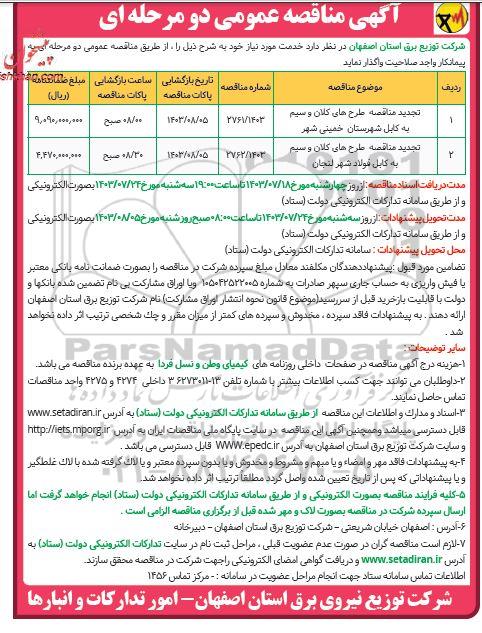 آگهی مناقصه عمومی دو مرحله ای
شرکت توزیع برق استان اصفهان در نظر دارد خدمت مورد نیاز خود به شرح ذیل را ، از طریق مناقصه عمومی دو مرحله ای به
پیمانکار واجد صلاحیت واگذار نماید.
ردیف موضوع مناقصه شماره مناقصه تاریخ بازگشایی پاکات مناقصه ساعت بازگشایی پاکات مناقصه مبلغ ضمانتنامه (ریال)
۱ تجدید مناقصه طرح های کلان و سیم به کابل شهرستان خمینی شهر ۲۷۶۱/۱۴۰۳ ۱۴۰۳/۰۸/۰۵ ۰۸/۰۰ صبح ۹,۰۹۰,۰۰۰,۰۰۰
۲ تجدید مناقصه طرح های کلان و سیم به کابل فولاد شهر لنجان ۲۷۶۲/۱۴۰۳ ۱۴۰۳/۰۸/۰۵ ۰۸/۳۰ صبح ۴,۴۷۰,۰۰۰,۰۰۰
مدت دریافت اسناد مناقصه: از روز چهارشنبه مورخ ۱۴۰۳/۰۷/۱۸ تا ساعت ۱۹:۰۰ سه شنبه مورخ ۱۴۰۳/۰۷/۲۴ بصورت الکترونیکی
و از طریق سامانه تدارکات الکترونیکی دولت (ستاد)
مدت تحویل پیشنهادات: از روز سه شنبه مورخ ۱۴۰۳/۰۷/۲۴ تا ساعت ۰۸:۰۰ صبح روز شنبه مورخ ۱۴۰۳/۰۸/۰۵ بصورت الکترونیکی
و از طریق سامانه تدارکات الکترونیکی دولت (ستاد)
محل تحویل پیشنهادات : سامانه تدارکات الکترونیکی دولت (ستاد)
تضامین مورد قبول :پیشنهاددهندگان مکلفند معادل مبلغ سپرده شرکت در مناقصه را بصورت ضمانت نامه بانکی معتبر
یا فیش واریزی به حساب جاری سپهر صادرات به شماره ۰۱۰۵۰۴۲۵۲۲۰۰۵ ویا اوراق مشارکت بی نام تضمین شده بانکها و
دولت با قابلیت بازخرید قبل از سررسید(موضوع قانون نحوه انتشار اوراق مشارکت) نام شرکت توزیع برق استان اصفهان
ارائه دهند . به پیشنهادات فاقد سپرده ، مخدوش و سپرده های کمتر از میزان مقرر و چك شخصی ترتیب اثر داده نخواهد
شد .
سایر توضیحات :
۱-هزینه درج آگهی مناقصه در صفحات داخلی روزنامه های کیمیای وطن و نسل فردا به عهده برنده مناقصه می باشد.
۲-داوطلبان می توانند جهت کسب اطلاعات بیشتر با شماره تلفن ۱۳-۳۶۲۷۳۰۱۱ داخلی ۴۲۷۴ و ۴۲۷۵ واحد مناقصات
تماس حاصل نمایند.
۳-اسناد و مدارك و اطلاعات این مناقصه از طریق سامانه تدارکات الکترونیکی دولت (ستاد) به آدرس www.setadiran.ir
قابل دسترسی میباشد وهمچنین آگهی این مناقصه در سایت پایگاه ملی مناقصات ایران به آدرس http://iets.mporg.ir
و سایت شرکت توزیع برق استان اصفهان به آدرس WWW.epedc.ir قابل دسترسی می باشد .
۴-به پیشنهادات فاقد مهر و امضاء و یا مبهم و مشروط و مخدوش و یا بدون سپرده معتبر و یا لاك گرفته شده با لاك غلطگیر
و یا پیشنهاداتی که پس از تاریخ تعیین شده واصل گردد مطلقاً ترتیب اثر داده نخواهد شد.
۵-کلیه فرایند مناقصه بصورت الکترونیکی و از طریق سامانه تدارکات الکترونیکی دولت (ستاد) انجام خواهد گرفت اما
ارسال سپرده شرکت در مناقصه بصورت لاك و مهر شده قبل از برگزاری مناقصه الزامی است .
۶-آدرس : اصفهان خیابان شریعتی – شرکت توزیع برق استان اصفهان – دبیرخانه
۷-لازم است مناقصه گران در صورت عدم عضویت قبلی ، مراحل ثبت نام در سایت تدارکات الکترونیکی دولت (ستاد) به
آدرس www.setadiran.ir و دریافت گواهی امضای الکترونیکی راجهت شرکت در مناقصه محقق سازند.
اطلاعات تماس سامانه ستاد جهت انجام مراحل عضویت در سامانه : - مرکز تماس ۱۴۵۶
شرکت توزیع نیروی برق استان اصفهان- امور تدارکات و انبارها